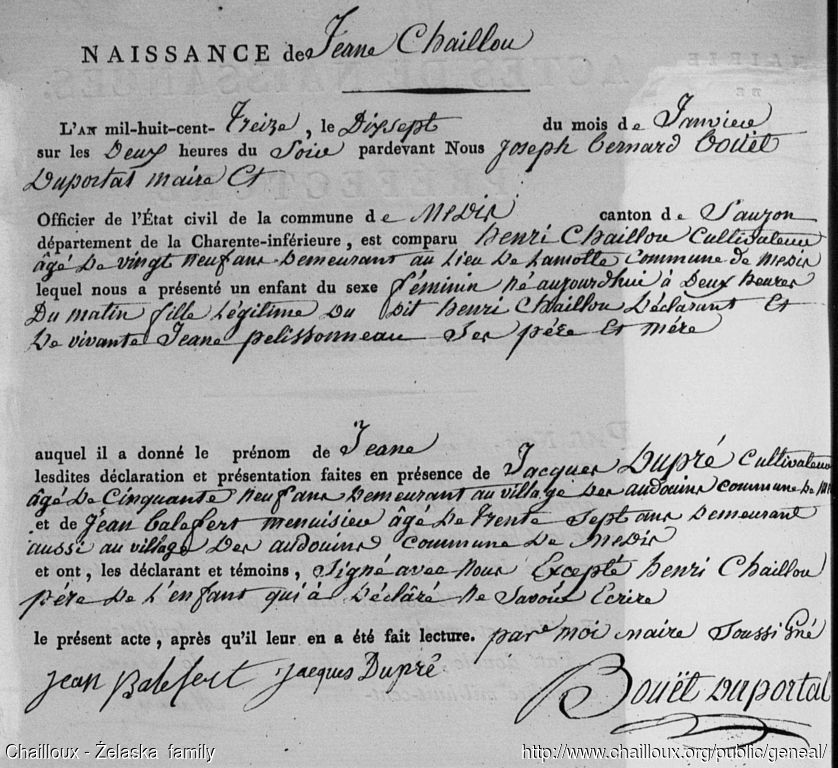 NAISSANCE de Jeane Chaillou
L'AN mil-huit-cent- Treize, le Dixsept du mois de Janvier
sur les Deux heures du Soir pardevant Nous Joseph Bernard Boüet
Duportal maire Et
Officier de l'État civil de la commune de Medis canton de Saujon
département de la Charente-inférieure, est comparu henri Chaillou Cultivateur
âgé De vingt Neuf ans Demeurant au Lieu De Lamotte Commune de Medis
lequel nous a présenté un enfant du sexe féminin Né aujourdhui à Deux heures
Du matin fille Légitime Du Dit henri Chaillou Déclarant Et
De vivante Jeane pelissonneau Ses pére Et mére
auquel il a donné le prénom de Jeane
lesdites déclaration et présentation faites en présence de Jacques Dupré Cultivateur
âgé De Cinquante Neuf ans Demeurant au village Des audouins commune De
et de Jean Balefert menuisier âgé De trente Sept ans Demeurant
aussi au village Des audouins Commune De Medis
et ont, les déclarant et témoins, Signé avec Nous Excepté henri Chaillou
pére De L'enfant qui à Déclâré Ne Savoir Ecrire
le présent acte, après qu'il leur en a été fait lecture. par moi maire Soussigné
Jean Balefert Jacques Dupré Bouët Duportal
Chailloux - Żelaska family http://www.chailloux.org/public/geneal/